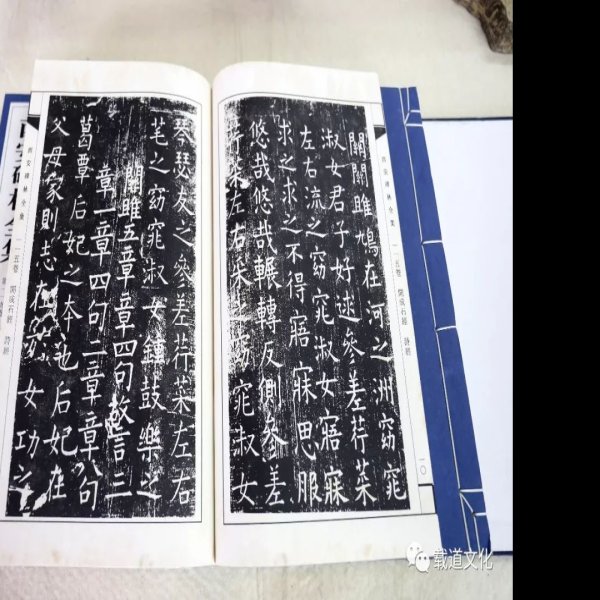 關關雎鳩在河之洲窈窕
淑女君子好逑參差荇菜
左右流之窈窕淑女寤寐
求之求之不得寤寐思服
悠哉悠哉輾轉反側參差
荇菜左右采之窈窕淑女
西安碑林全集 一一五卷 開成石經 詩經
一〇
琴瑟友之參差荇菜左右
芼之窈窕淑女鍾鼓樂之
關雎五章章四句故言三
章一章四句二章章八句
葛覃后妃之本也后妃在
父母家則志在於女功之
西安碑林全集 一一五卷 開成石經 詩經
西安碑林全集
载道文化